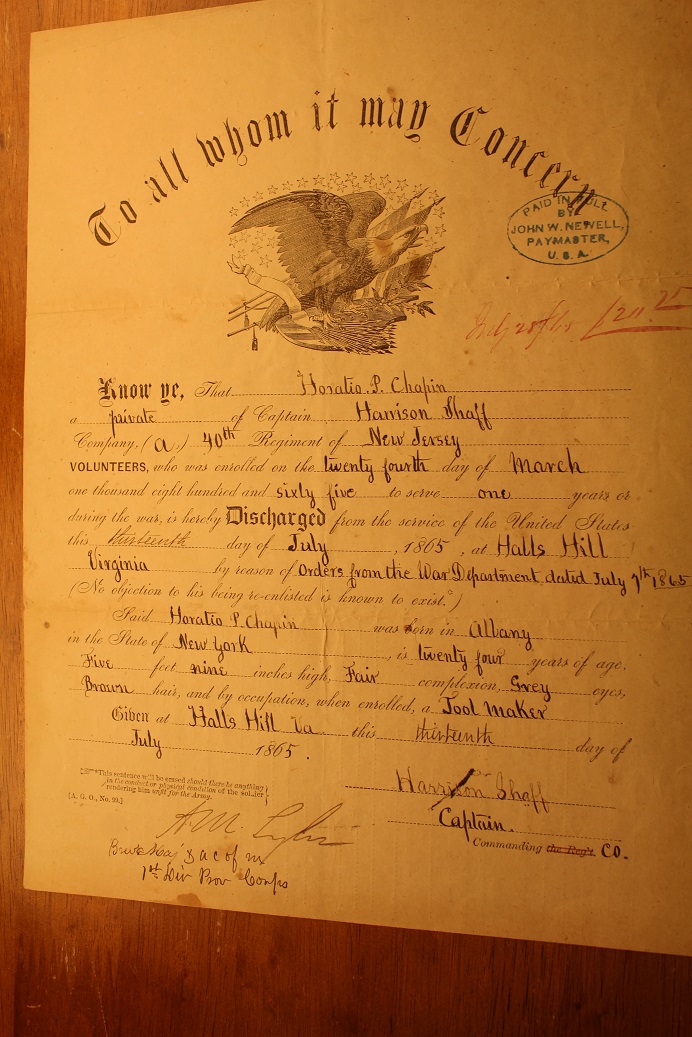 To all whom it may Concern
PAID IN FULL
BY
JOHN W. NEWELL,
PAYMASTER,
U.S.A.
Know ye, That Horatio P. Chapin
a private of Captain Harrison Shaff
Company, (A.) 40th Regiment of New Jersey
VOLUNTEERS, who was enrolled on the twenty fourth day of March
one thousand eight hundred and sixty five to serve one years or
during the war, is hereby Discharged from the service of the United States
this thirteenth day of July, 1865, at Halls Hill
Virginia by reason of Orders from the War Department, dated July 7th, 1865
(No objection to his being re-enlisted is known to exist.*)
Said Horatio P. Chapin was born in Albany
in the State of New York, is twenty four years of age,
Five feet nine inches high, Fair complexion, Grey eyes,
Brown hair, and by occupation, when enrolled, a Tool Maker
Given at Halls Hill Va this thirteenth day of
July 1865.
*This sentence will be erased should there be anything
in the conduct or physical condition of the soldier
rendering him unfit for the Army.
[A. G. O., No. 99.]
Harrison Shaff
Captain.
Commanding the Reg't. Co.
1st Div Prov Corps